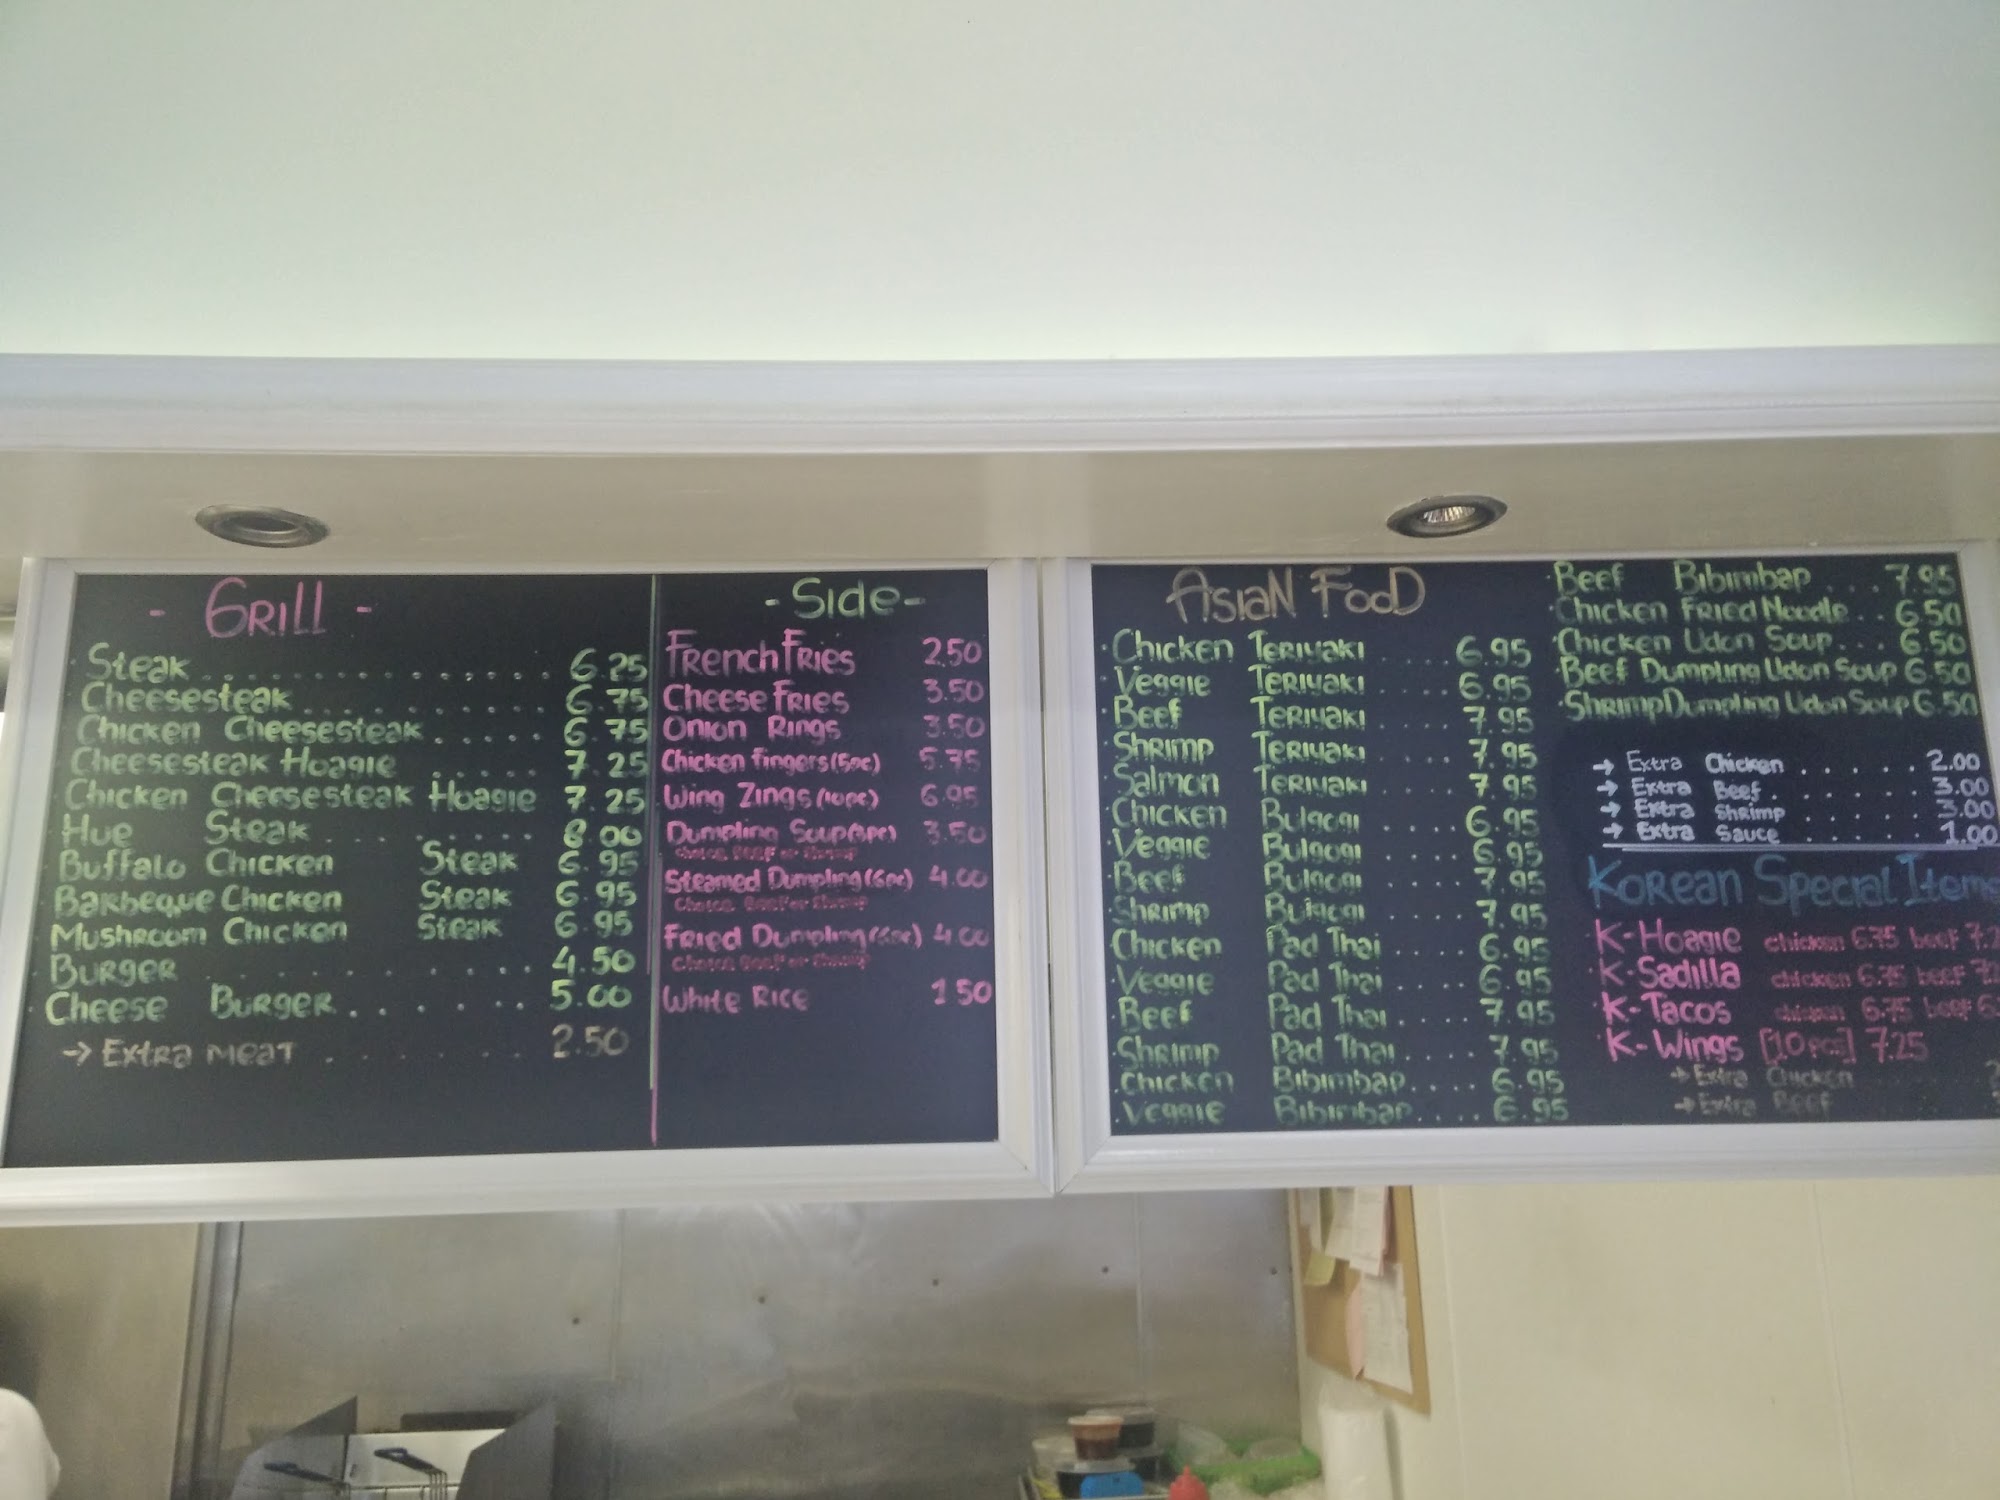 - Grill -
Steak . . . . . . . . . . . . . . 6.25
Cheesesteak . . . . . . . . . 6.75
Chicken Cheesesteak . . . . . 6.75
Cheesesteak Hoagie . . . . . 7.25
Chicken Cheesesteak Hoagie 7.25
Hue Steak . . . . . . . . . 8.00
Buffalo Chicken Steak 6.95
Barbeque Chicken Steak 6.95
Mushroom Chicken Steak 6.95
Burger . . . . . . . . . . . . 4.50
Cheese Burger . . . . . . . 5.00
→ Extra meat . . . . . . . 2.50
- Side -
French Fries 2.50
Cheese Fries 3.50
Onion Rings 3.50
Chicken Fingers (5pc) 5.75
Wing Zings (10pc) 6.95
Dumpling Soup 3.50
choice Beef or Shrimp
Steamed Dumpling (6pc) 4.00
Choice Beef or Shrimp
Fried Dumpling (6pc) 4.00
Choice Beef or Shrimp
White Rice 1.50
Asian Food
Chicken Teriyaki . . . . 6.95
Veggie Teriyaki . . . . 6.95
Beef Teriyaki . . . . 7.95
Shrimp Teriyaki . . . . 7.95
Salmon Teriyaki . . . . 7.95
Chicken Bulgogi . . . . 6.95
Veggie Bulgogi . . . . 6.95
Beef Bulgogi . . . . 7.95
Shrimp Bulgogi . . . . 7.95
Chicken Pad Thai . . . . 6.95
Veggie Pad Thai . . . . 6.95
Beef Pad Thai . . . . 7.95
Shrimp Pad Thai . . . . 7.95
Chicken Bibimbap . . . . 6.95
Veggie Bibimbap . . . . 6.95
Beef Bibimbap . . . . 7.95
Chicken Fried Noodle . . 6.50
Chicken Udon Soup . . . 6.50
Beef Dumpling Udon Soup 6.50
Shrimp Dumpling Udon Soup 6.50
→ Extra Chicken . . . . . . 2.00
→ Extra Beef . . . . . . . 3.00
→ Extra Shrimp . . . . . . 3.00
→ Extra Sauce . . . . . . 1.00
Korean Special Items
K-Hoagie chicken 6.75 beef
K-Sadilla chicken 6.75 beef
K-Tacos chicken 6.75 beef
K-Wings [10pcs] 7.25
→ Extra Chicken
→ Extra Beef